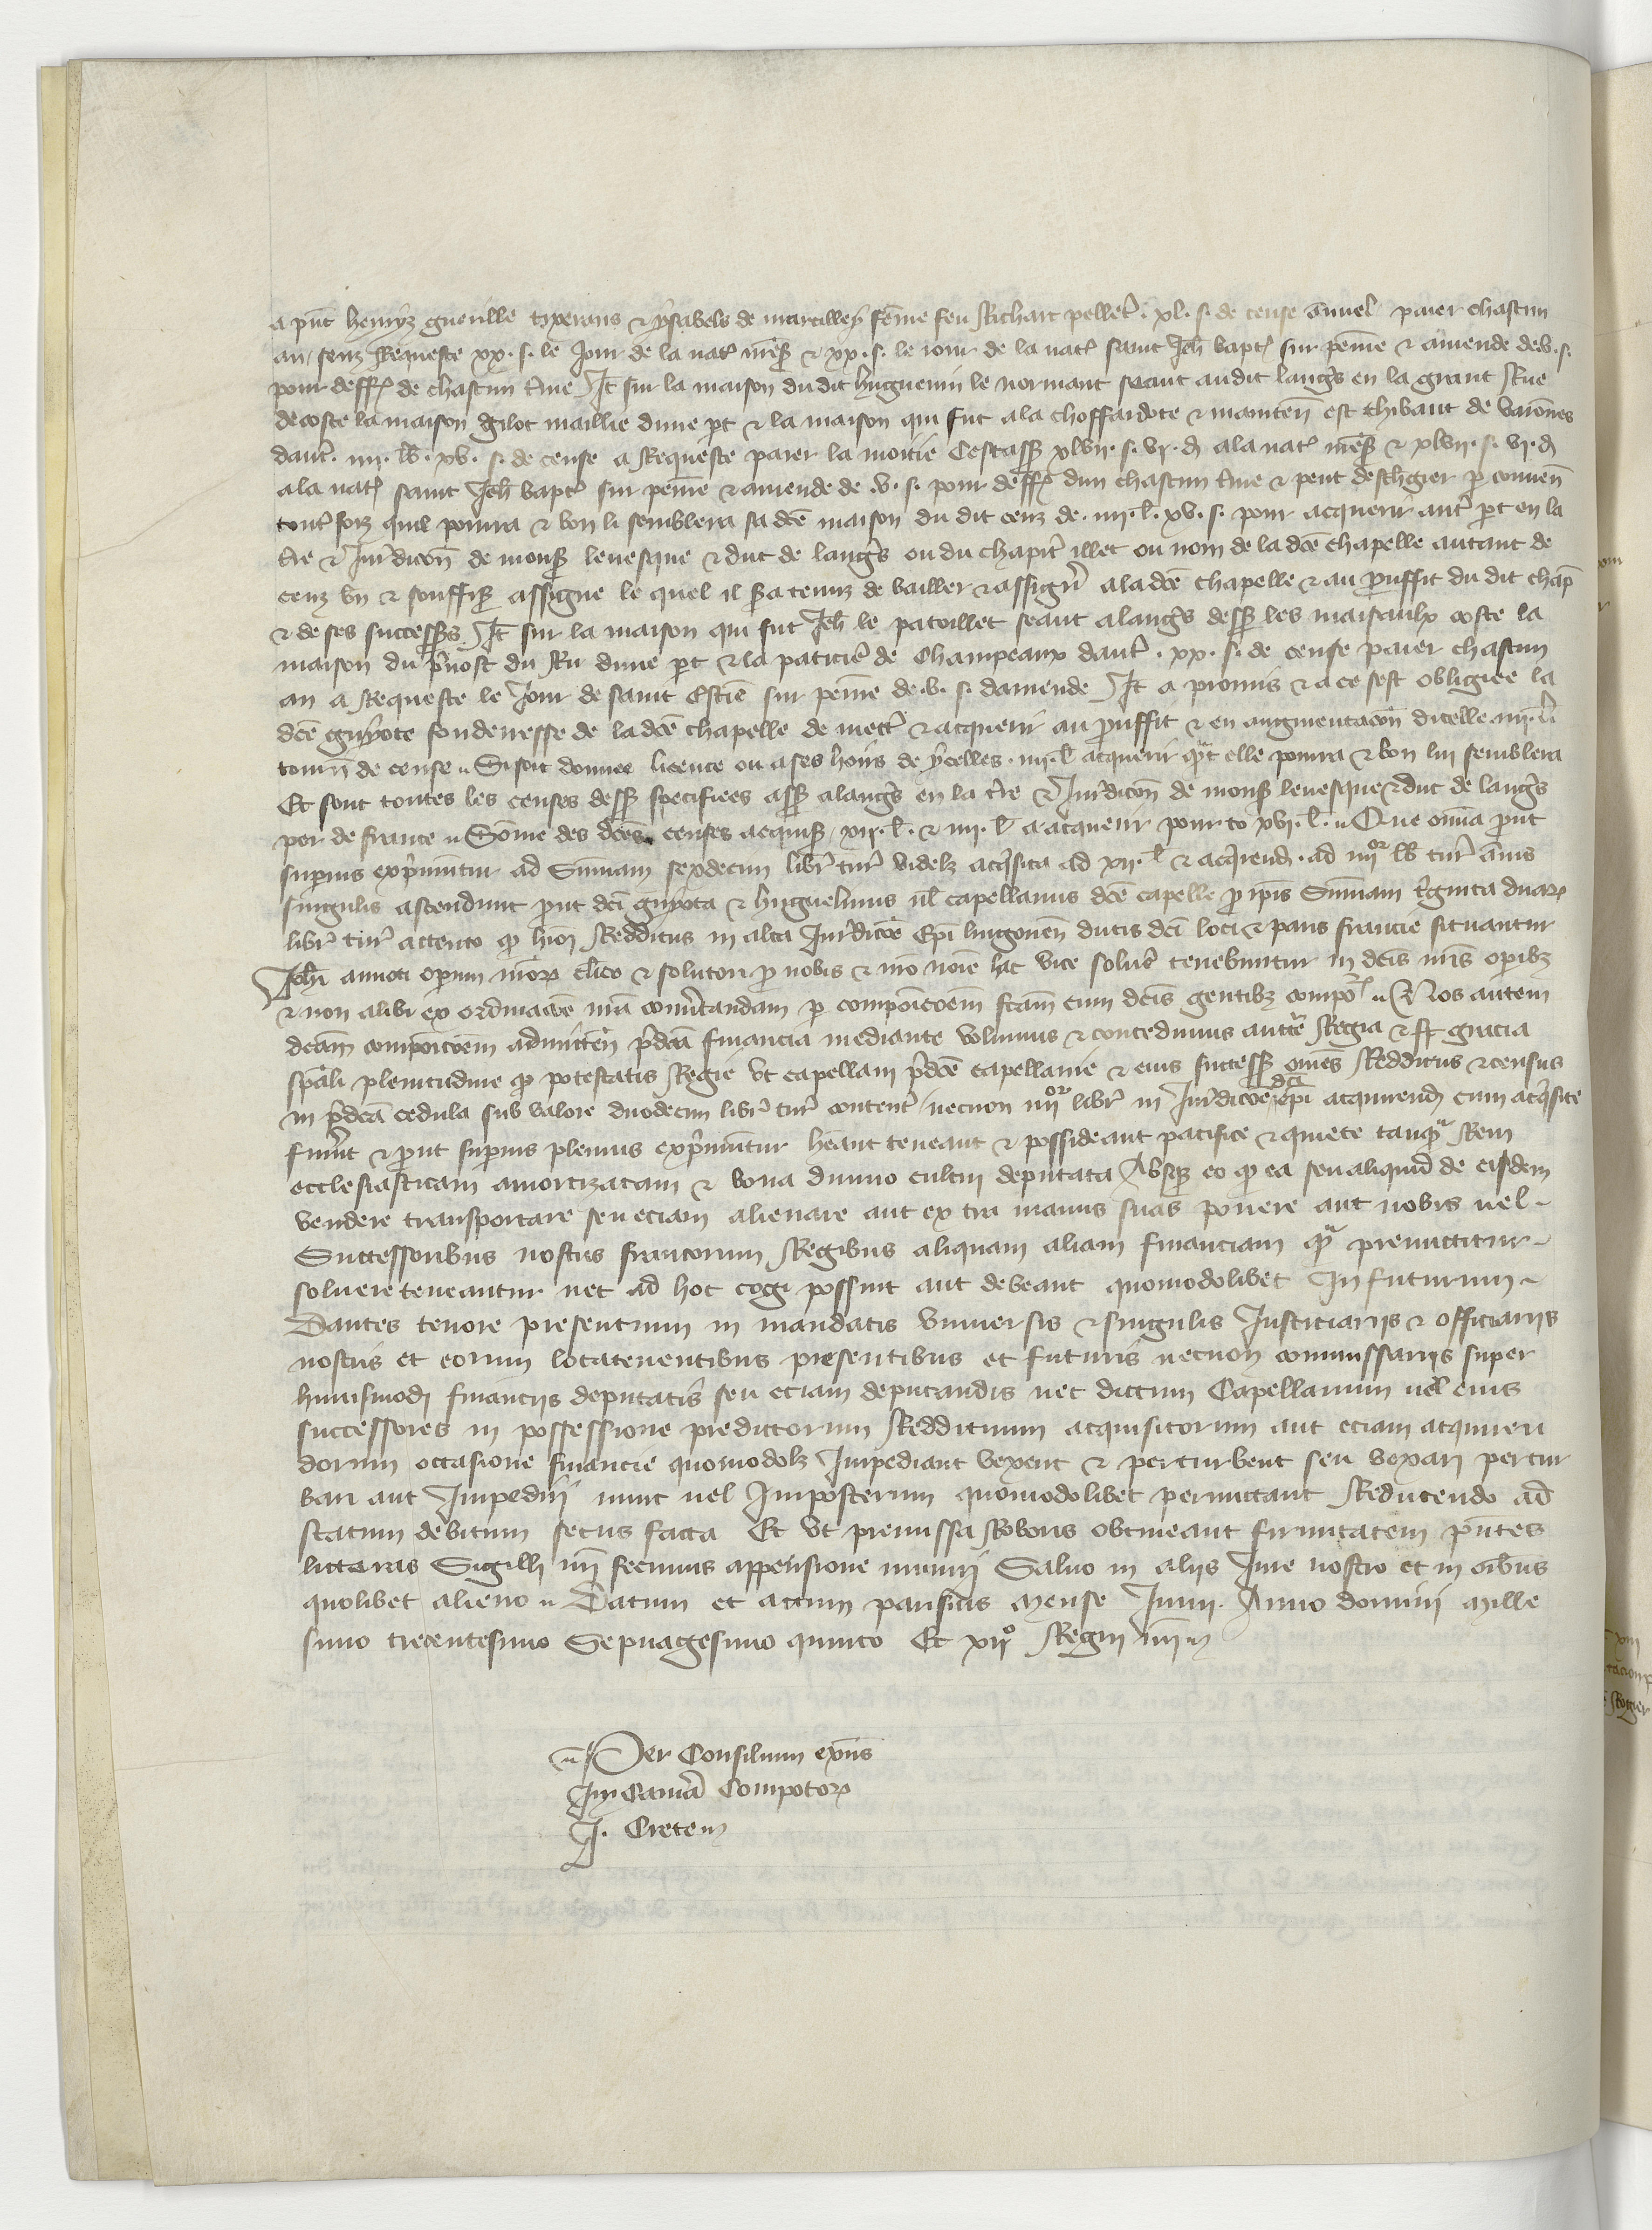 a pñt henryz gueville tixerans & ysabels de marcilley fẽme feu Richart pelletˀ .xl. s. de cense ãnuel paier chascun
an senz Requeste xx. s. le Jour de la natˀ nrẽ sˀ & xx. s. le iour de la natˀ saint Jeh̃ baptˀ sur peinne & amende de .v. s.
pour deffˀ de chascun tˀme Jt̃ sur la maison du dit huguenin le normant seant audit langˀs en la grant Rue
decoste la maison gilot maillie dune pˀt & la maison qui fut ala choffardote & mainteñ est thibaut de
dautˀ .iiij. lb̃. xv. s. de cense a Requeste paier la moitie Cestassˀ xlvij. s. vj. d ala natˀ nrẽ sˀ & xlvij. s. vj. d
ala natˀ saint Jeh̃ baptˀ sur peinne & amende de .v. s. pour deffˀ dun chascun tˀme & peut deschˀgier pˀ couueñ
toutˀ foiz quil pourra & bon li semblera sa dcẽ maison du dit cenz de .iiij. l̃. xv. s. pour acquerir autˀ pˀt en la
tˀre & Juˀdicoñ de monsˀ leuesque & duc de langˀs ou du chapitˀ illec ou nom de la dcẽ chapelle autant de
cenz bñ & souffisˀ assigne le quel il sˀa tenuz de bailler & assignˀ ala dcẽ chapelle & au prouffit du dit chapˀ
& de ses successˀs. Jt̃ sur la maison qui fut Jeh̃ le patoillet seant alangˀs dessˀ les maiseaulx coste la
maison du pˀuost du Ru dune pˀt & la paticiˀe de Champeaux dautˀ .xx. s. de cense paier chascun
an a Requeste le Jour de saint Estiẽ sur peinne de .v. s. damende Jt̃ a promis & a ce sest obligiee la
dcẽ guyote fonderresse de la dcẽ chapelle de mectˀ & acquerir au prouffit & en augmentacoñ dicelle .iiij. l̃.
tourñ de cense .. Si soit donnee licence ou a ses hoirs de ycelles .iiij. l̃ acquerir qˀt elle pourra & bon lui semblera
Et sont toutes les censes dessˀ specifiees assˀ alangˀs en la tˀre & Juˀdicoñ de monsˀ leuesque & duc de langˀs
per de france .. Sõme des dcẽs censes acquisˀ .xij. l̃. & iiij. l̃ a acquerir pour to xvj. l̃ .. Que om̃ia pˀut
supˀius expˀimũtur ad Sũmam sexdecim librˀ turˀ videlz acqˀsita ad xij. l̃ & acqˀrendˀ ad iiijor lb̃ turˀ ãnis
singulis ascendunt pˀut dcĩ guyota & huguelinus ul̃ capellanus dcẽ capelle pˀ ipĩs Sũmam tˀginta duarˀ
librˀ turˀ actento qˀ hiõi Redditus in alta Juˀdicoẽ Epĩ lingoneñ ducis dcĩ loci & paris francie situantur
Joh̃i amioti opˀum nrõrˀ clˀico & solutori pˀ nobis & nrõ noĩe hac vice soluˀe tenebuntur in dcĩs nrĩs opˀibz
& non alibi ex ordinacoẽ nrã conuˀtandam pˀ compoicoẽm fcãm cum dcĩs gentibz compotˀ .. Nos autem
dcãm compoicoẽm admitteñ pˀdcã financia mediante volumus & concedimus auctˀe Regia & de gracia
spãli plenitudine qˀ potestatis Regie vt capellani pˀdcẽ capellanie & eius successˀ om̃es Redditus & census
in pˀdcã cedula sub valore duodecim librˀ turˀ contentˀ necnon iiijor librˀ in Juˀdicoẽ dcĩ epĩ acquirendˀ cum acqˀsite
fuerĩt & pˀut supˀius plenius expˀimũtur hẽant teneant & possideant pacifice & quiete tanqˀ Rem
ecclesiasticam amortizatam & bona diuino cultui deputata Absqˀ eo qˀ ea seu aliquid de eisdem
vendere transportare seu eciam alienare aut extra manus suas ponere aut nobis uel
Successoribus nostris francorum Regibus aliquam aliam financiam qˀ premictitur
soluere teneantur nec ad hoc cogi possint aut debeant quomodolibet In futurum
Dantes tenore presentium in mandatis vniuersis & singulis Justiciarijs & officiarijs
nostris et eorum locatenentibus presentibus et futuris necnon commissarijs super
huiusmodi financijs deputatis seu eciam deputandis nec dictum Capellanum uel eius
successores in possessione predictorum Reddituum acquisitorum aut eciam acquiren
dorum occasione financie quomodolz Impediant vexent & perturbent seu vexari pertur
bari aut Impediri nunc uel Imposterum quomodolibet permittant Reducendo ad
statum debitum secus facta Et vt premissa Roboris obtineant firmitatem pñtes
litteras Sigilli nrĩ fecimus appensione muniri Saluo in alijs Jure nostro et in oĩbus
quolibet alieno .. Datum et actum parisius mense Junij. Anno domini mille
simo trecentesimo Septuagesimo quinto Et xijo Regni nrĩ ..
Per Consilium exñs
In Camˀa Compotorˀ
J. Cretem